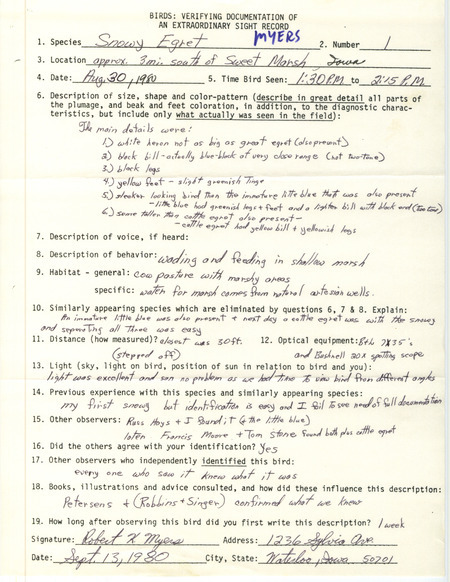 BIRDS: VERIFYING DOCUMENTATION OF
AN EXTRAORDINARY SIGHT RECORD
MYERS
1. Species Snowy Egret 2. Number 1
3. Location approx. 3 mi. south of Sweet Marsh, Iowa
4. Date: Aug. 30, 1980 5. Time Bird Seen: 1:30 P.M to 2:15 P.M.
6. Description of size, shape and color-pattern (describe in great detail all parts of
the plumage, and beak and feet coloration, in addition, to the diagnostic charac-
teristics, but include only what actually was seen in the field):
The main details were:
1) white heron not as big as great egret (also present)
2) black bill - actually blue-black at very close range (not two-tone)
3) black legs
4.) yellow feet - slight greenish tinge
5) sleeker looking bird than the immature little blue that was also present
- little blue had greenish legs + feet and a lighter bill with black end (two tone)
6.) some taller than cattle egret also present -
- cattle egret had yellow bill + yellowish legs
7. Description of voice, if heard:
8. Description of behavior: wading and feeding in shallow marsh
9. Habitat - general: cow pasture with marshy areas
specific: water for marsh comes from natural artesian wells.
10. Similarly appearing species which are eliminated by questions 6, 7 & 8. Explain:
An immature little blue was also present + next day a cattle egret was with the snowy
and separating all three was easy
11. Distance (how measured)? closest was 30 ft. 12. Optical equipment: B+L 7X35's
(stepped off) and Bushnell 20X spotting scope
13. Light (sky, light on bird, position of sun in relation to bird and you):
light was excellent and sun no problem as we had time to view bird from different angles
14. Previous experience with this species and similarly appearing species:
my first snowy but identification is easy and I fail to see need of full documentation
15. Other observers: Russ Hays + I found it (+ the little blue)
later Francis Moore + Tom Stone found both plus cattle egret
16. Did the others agree with your identification? Yes
17. Other observers who independently identified this bird:
every one who saw it knew what it was
18. Books, illustrations and advice consulted, and how did these influence this description:
Petersens + (Robbins + Singer) confirmed what we knew
19. How long after observing this bird did you first write this description? 1 week
Signature: Robert K Myers Address: 1236 Sylvia Ave
Date: Sept. 13, 1980 City, State: Waterloo, Iowa 50701